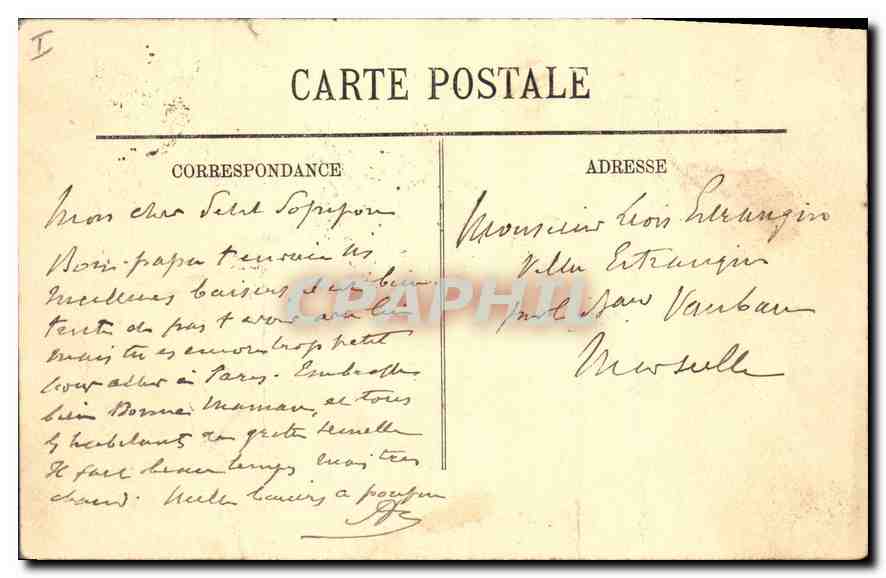 I
CARTE POSTALE
CORRESPONDANCE
Mon cher Petit
Bon-papa t'envoie ses
meilleurs baisers, il est bien
triste de pas t'avoir avec lui
mais tu es encore trop petit
pour aller à Paris. Embrasse
bien Bonne Maman, et tous
les habitants de
Il fait beau temps mais très
chaud. Mille baisers a
ADRESSE
Monsieur Léon Estrangin
Villa Estrangin
Vauban
Marseille
CPAPHIL